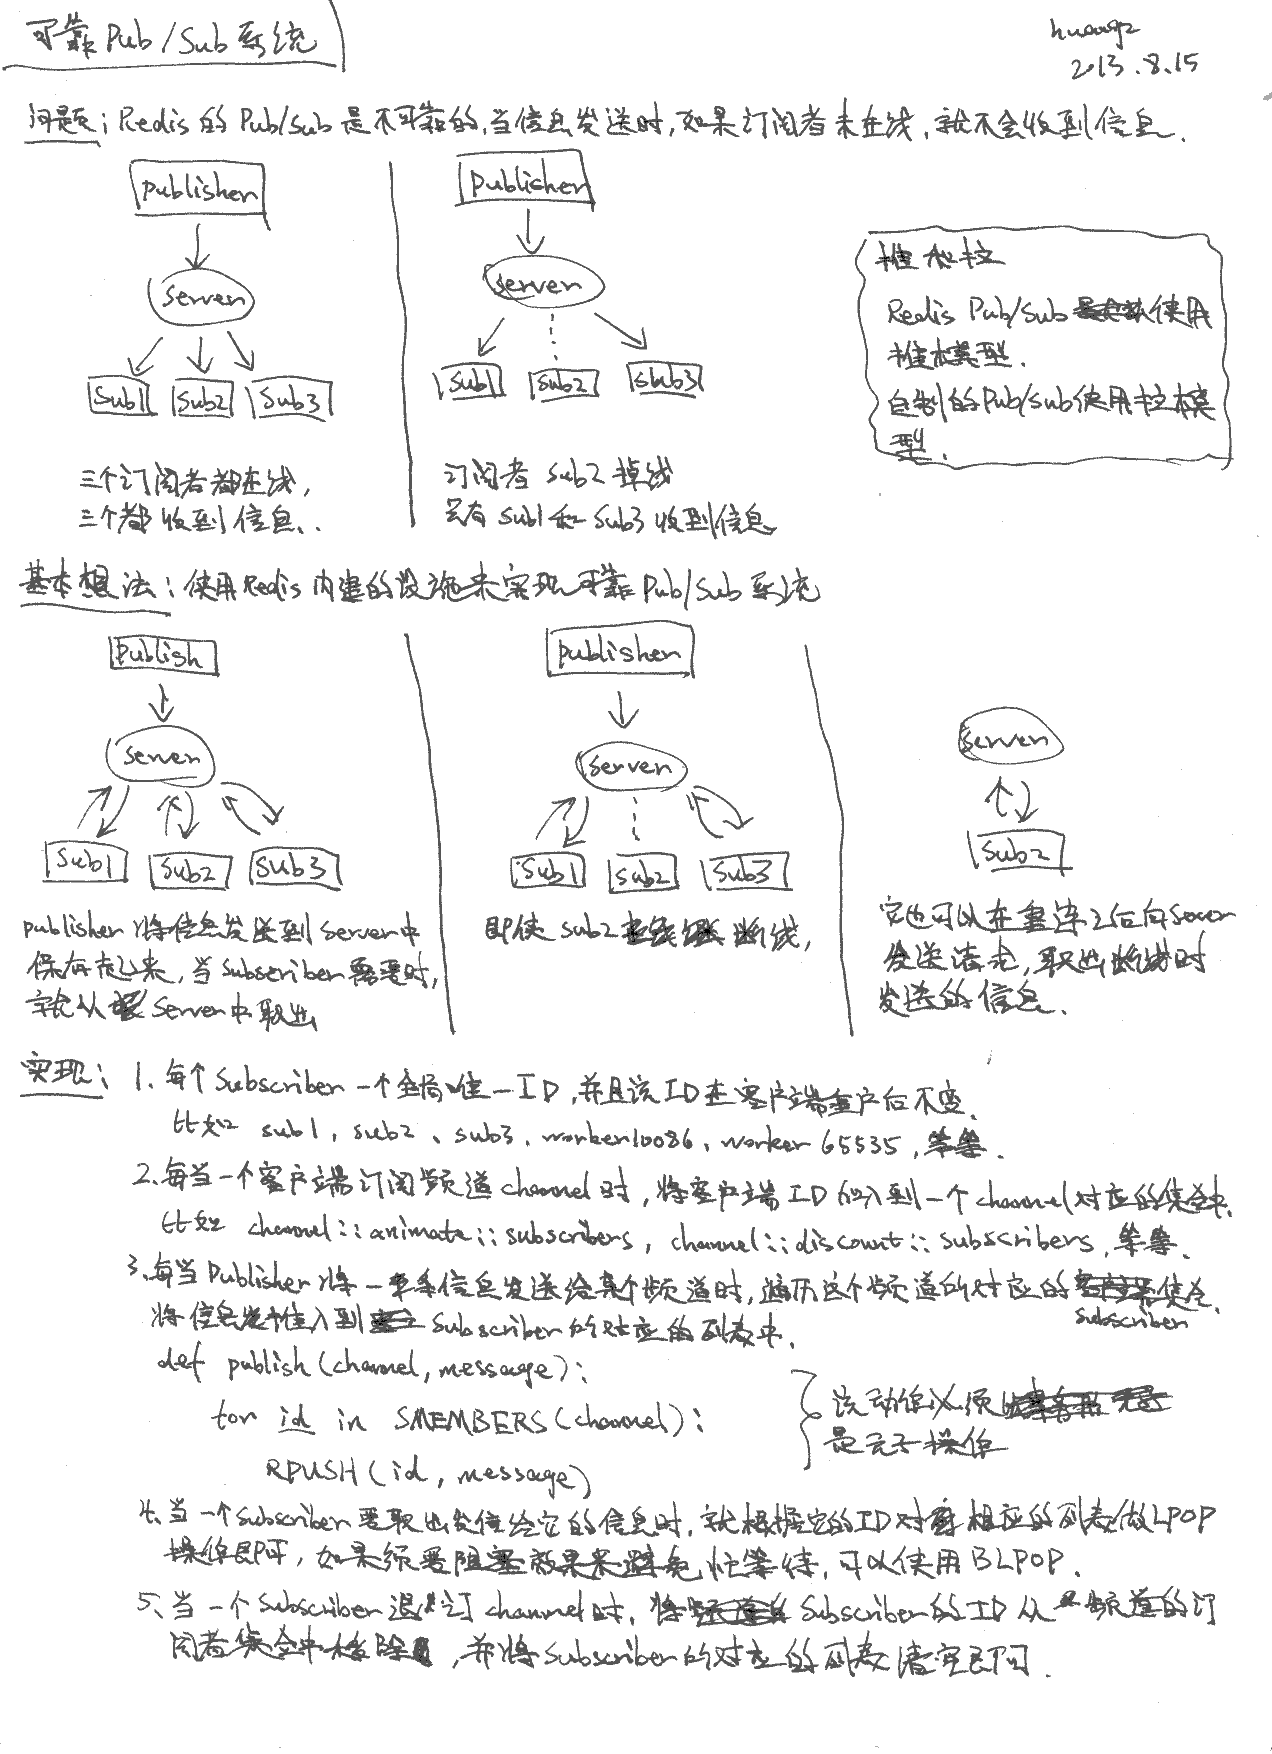 可靠Pub/Sub系统
huangz
2013.8.15
问题:Redis的Pub/Sub是不可靠的,当信息发送时,如果订阅者未在线,就不会收到信息.
publisher
server
sub1 sub2 sub3
三个订阅者都在线,
三个都收到信息..
publisher
server
sub1 sub2 sub3
订阅者 sub2 掉线
只有 sub1 和 sub3 收到信息
推和拉
Redis Pub/Sub 使用
推模型.
自制的Pub/Sub使用拉模
型.
基本想法:使用Redis内建的设施来实现可靠Pub/Sub系统
publish
server
sub1 sub2 sub3
publisher将信息发送到server中
保存起来,当subscriber需要时,
就从server中取出
publisher
server
sub1 sub2 sub3
即使sub2 断线,
server
sub2
它也可以在重连之后向server
发送请求,取出断线时
发送的信息.
实现:1、每个subscriber一个全局唯一ID,并且该ID在客户端重启后不变.
比如 sub1、sub2、sub3、worker10086、worker65535,等等.
2、每当一个客户端订阅频道channel时,将客户端ID加入到一个channel对应的集合中.
比如 channel::animate::subscribers, channel::discount::subscribers,等等.
3、每当Publisher将一条信息发送给某个频道时,遍历这个频道的对应的集合,
subscriber
将信息推入到 subscriber的对应的列表中.
def publish(channel,message):
for id in SMEMBERS(channel):
RPUSH(id,message)
该动作必须
是原子操作
4、当一个subscriber要取出发送给它的信息时,就根据它的ID对相应的列表做LPOP
操作即可,如果需要阻塞效果来避免忙等待,可以使用BLPOP.
5、当一个subscriber退订channel时,将 subscriber的ID从频道的订
阅者集合中移除,并将subscriber的对应的列表清空即可.